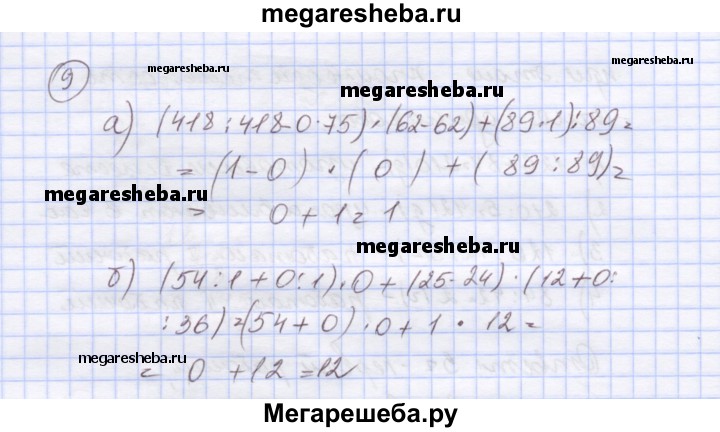 megaresheba.ru
9
megaresheba.ru megaresheba.ru
megaresheba.ru
а) (418:418-0·75)·(62-62)+(89·1):89=
=(1-0)·(0)+(89:89)=
megaresheba.ru
= 0+1=1
megaresheba.ru
б) (54:1+0:1)·0+(25-24)·(12+0:
:36)=(54+0)·0+1·12=
megaresheba.ru megaresheba.ru
= 0+12=12
Мегарешеба.ру